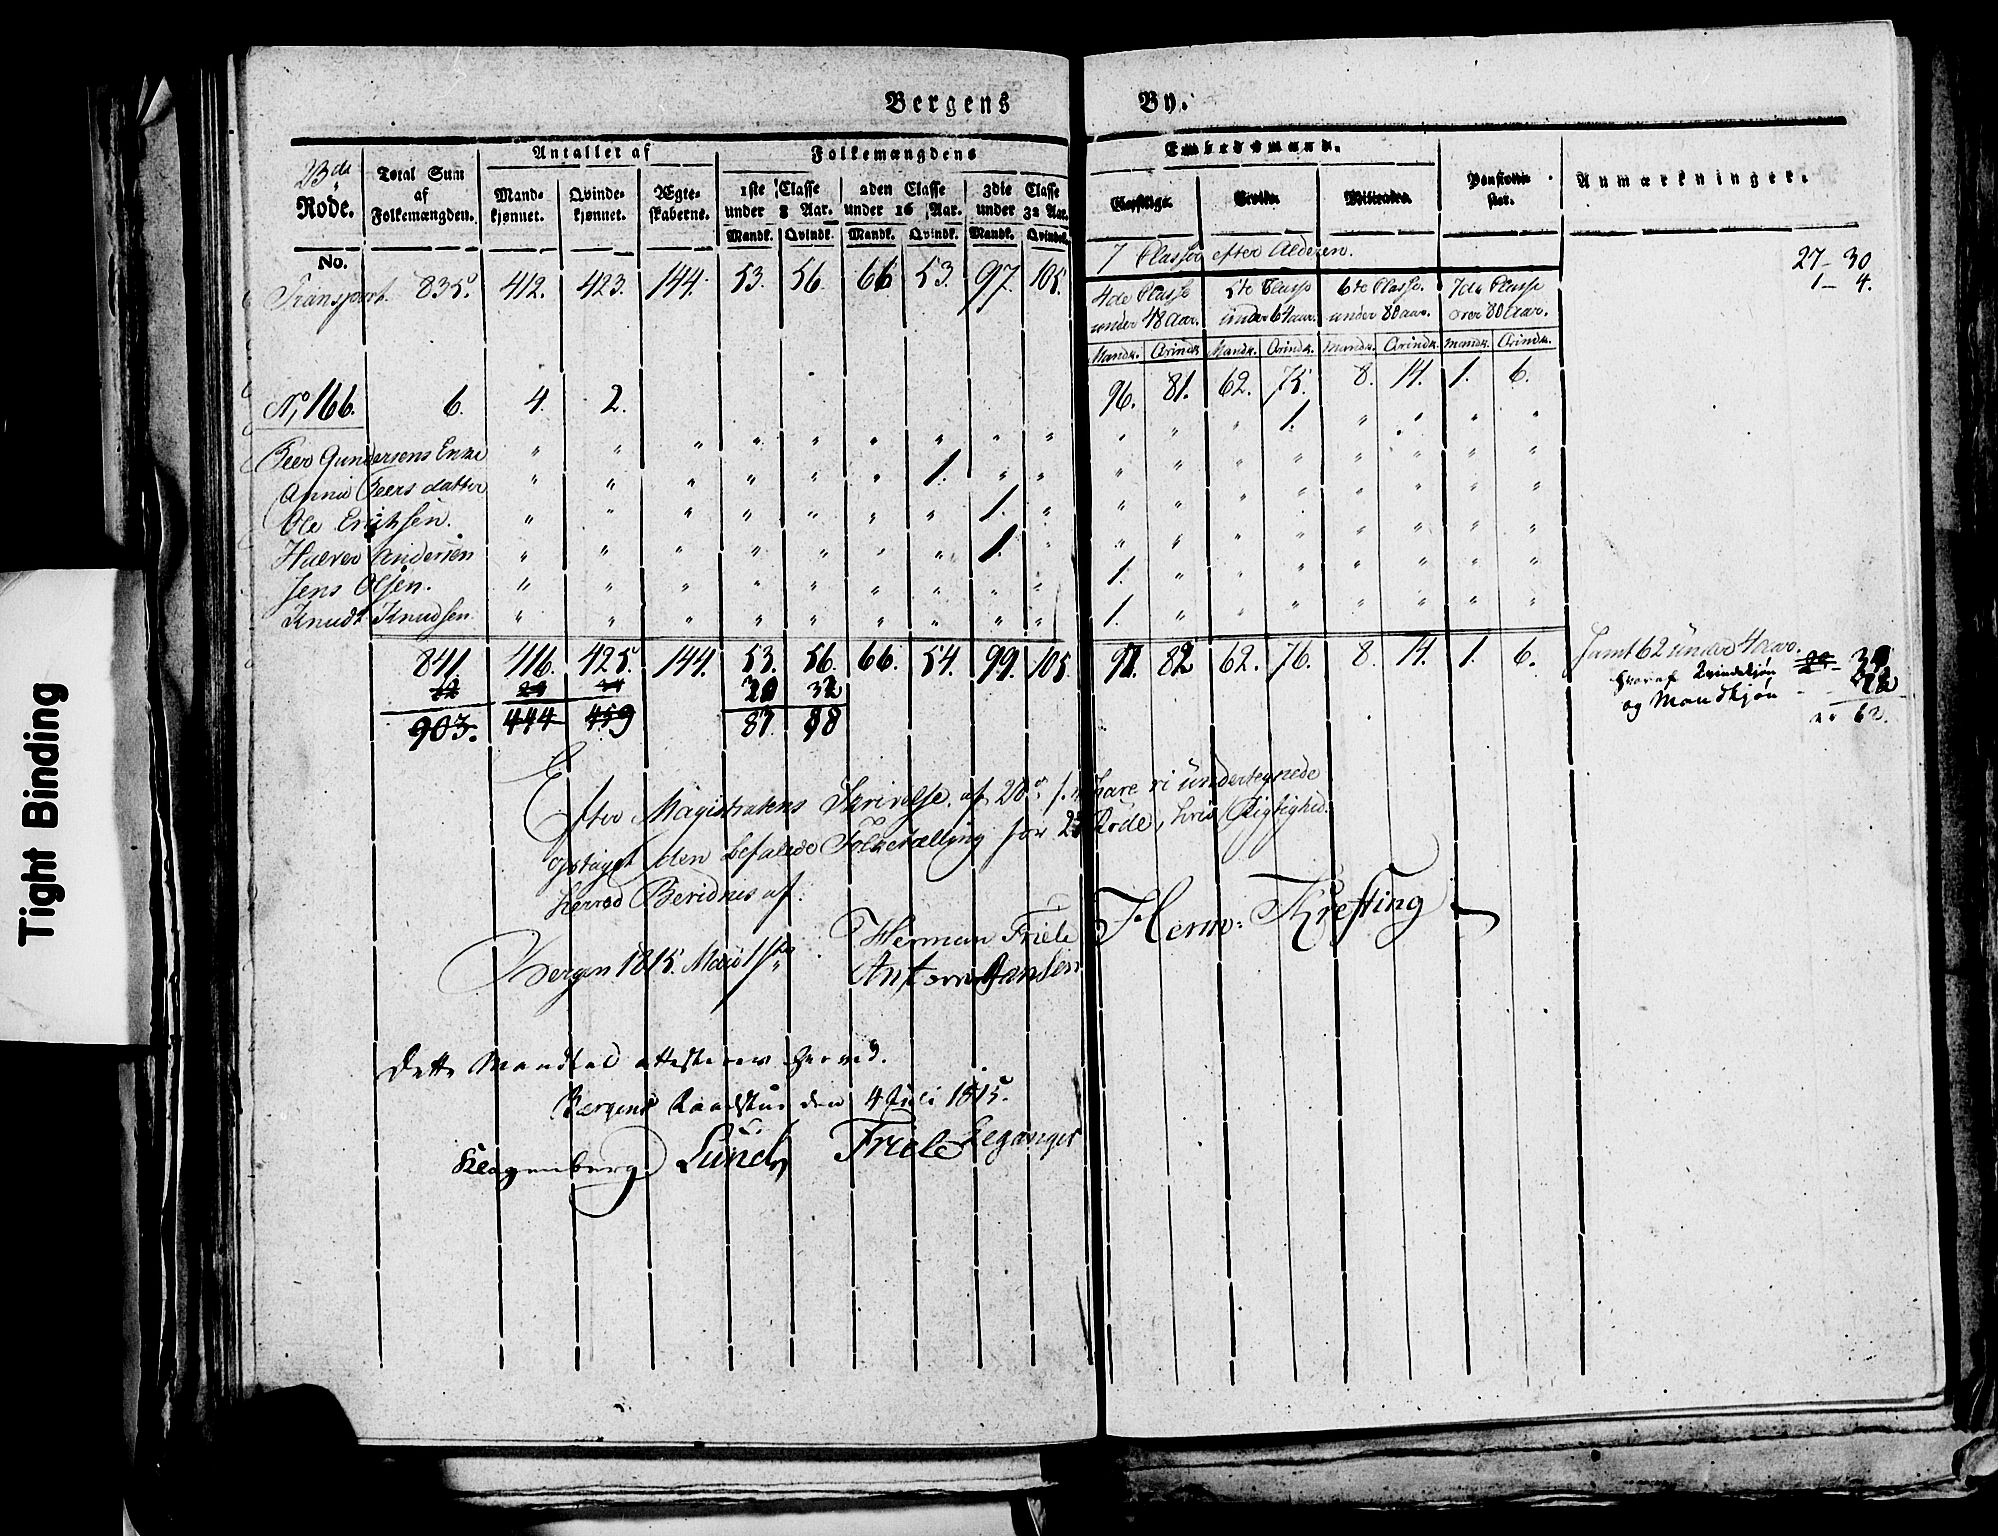 Bergens By.
23de Rode.
Total Sum af Folkemængden.
Antallet af
Mandkjønnet.
Qvindekjønnet.
Ægteskaberne.
Folkemængdens
1ste Classe under 8 Aar.
2den Classe under 16 Aar.
3die Classe under 32 Aar.
Mandk. Qvindk. Mandk. Qvindk. Mandk. Qvindk.
Embedsmænd.
Geistlige. Civile. Militaire.
Anmærkninger.
7 Classer efter Alderen.
4de Classe under 48 Aar.
5te Classe under 64 aar.
6te Classe. under 80 aar.
7de Classe over 80 Aar.
Mandk. Qvindk. Mandk. Qvindk. Mandk. Qvindk. Mandk. Qvindk.
No.
Transport 835. 412. 423. 144. 53. 56. 66 53. 97. 105. 96. 81. 62. 75. 8. 14. 1. 6. 27 - 30
1 - 4.
No 166. 6. 4. 2.
Peer Gundersens Enke 1.
Anna Peers datter 1.
Ole Erichsen. 1.
Halvor Andersen 1.
Jens Olsen. 1.
Knudt Knudsen 1.
841. 416. 425. 144. 53. 56. 66. 54. 99. 105 98. 82 62. 76. 8. 14. 1. 6.
903. 444 459 83. 88
Samt 62 under 4 aar.
hvoraf Qvindekjøn
og Mandkjøn
er 62.
Efter Magistratens Skrivelse af 28de f. m. have vi undertegnede
optaget den befalede Folketælling for 23 Rode, hvis Rigtighed
herved Bevidnes af:
Bergen 1815. Mai 1ste
Herman Friele Herm: Krefting
Anton Jansen
Dette Mandtal attesteres herved.
Bergens Raadstue den 4 Juli 1815.
Klagenberg Lund Friele Leganger
Tight Binding